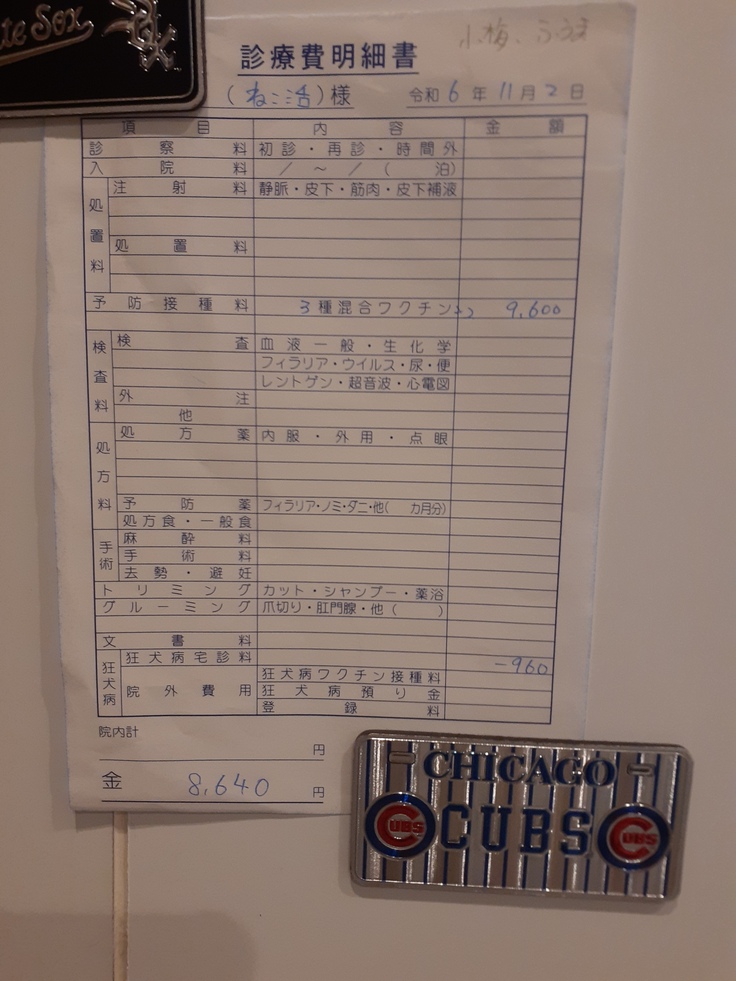 te Sox
小梅、ふうま
診療費明細書
(ねこ活)様 令和6年11月2日
項目 内容 金額
診察料 初診・再診・時間外
入院料 / ～ / ( 泊)
処置料 注射料 静脈・皮下・筋肉・皮下補液
処置料
予防接種料 3種混合ワクチン×2 9,600
検査料 検査 血液一般・生化学
フィラリア・ウイルス・尿・便
レントゲン・超音波・心電図
外注
他
処方料 処方薬 内服・外用・点眼
予防薬 フィラリア・ノミ・ダニ・他( カ月分)
処方食・一般食
手術 麻酔料
手術料
去勢・避妊
トリミング カット・シャンプー・薬浴
グルーミング 爪切り・肛門腺・他( )
文書料
狂犬病 狂犬病宅診料 -960
院外費用 狂犬病ワクチン接種料
狂犬病預り金
登録料
院内計
円
金 8,640 円
CHICAGO
CUBS CUBS CUBS